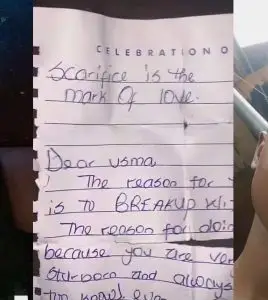 CELEBRATION O
Scarifice is the
mark Of love.
Dear usma
The reason for
is to BREAKUP Wit
The reason for doin
because you are ver
and always